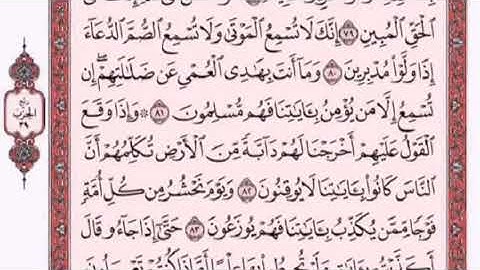 الْحَقِّ الْمُبِينِ ۝٧٩ إِنَّكَ لَا تُسْمِعُ الْمَوْتَىٰ وَلَا تُسْمِعُ الصُّمَّ الدُّعَاءَ
إِذَا وَلَّوْا مُدْبِرِينَ ۝٨٠ وَمَا أَنتَ بِهَادِي الْعُمْيِ عَن ضَلَالَتِهِمْ إِن
تُسْمِعُ إِلَّا مَن يُؤْمِنُ بِآيَاتِنَا فَهُم مُّسْلِمُونَ ۝٨١ ۞ وَإِذَا وَقَعَ
الْقَوْلُ عَلَيْهِمْ أَخْرَجْنَا لَهُمْ دَابَّةً مِّنَ الْأَرْضِ تُكَلِّمُهُمْ أَنَّ
النَّاسَ كَانُوا بِآيَاتِنَا لَا يُوقِنُونَ ۝٨٢ وَيَوْمَ نَحْشُرُ مِن كُلِّ أُمَّةٍ
فَوْجًا مِّمَّن يُكَذِّبُ بِآيَاتِنَا فَهُمْ يُوزَعُونَ ۝٨٣ حَتَّىٰ إِذَا جَاءُو قَالَ
الحزب
٣٩